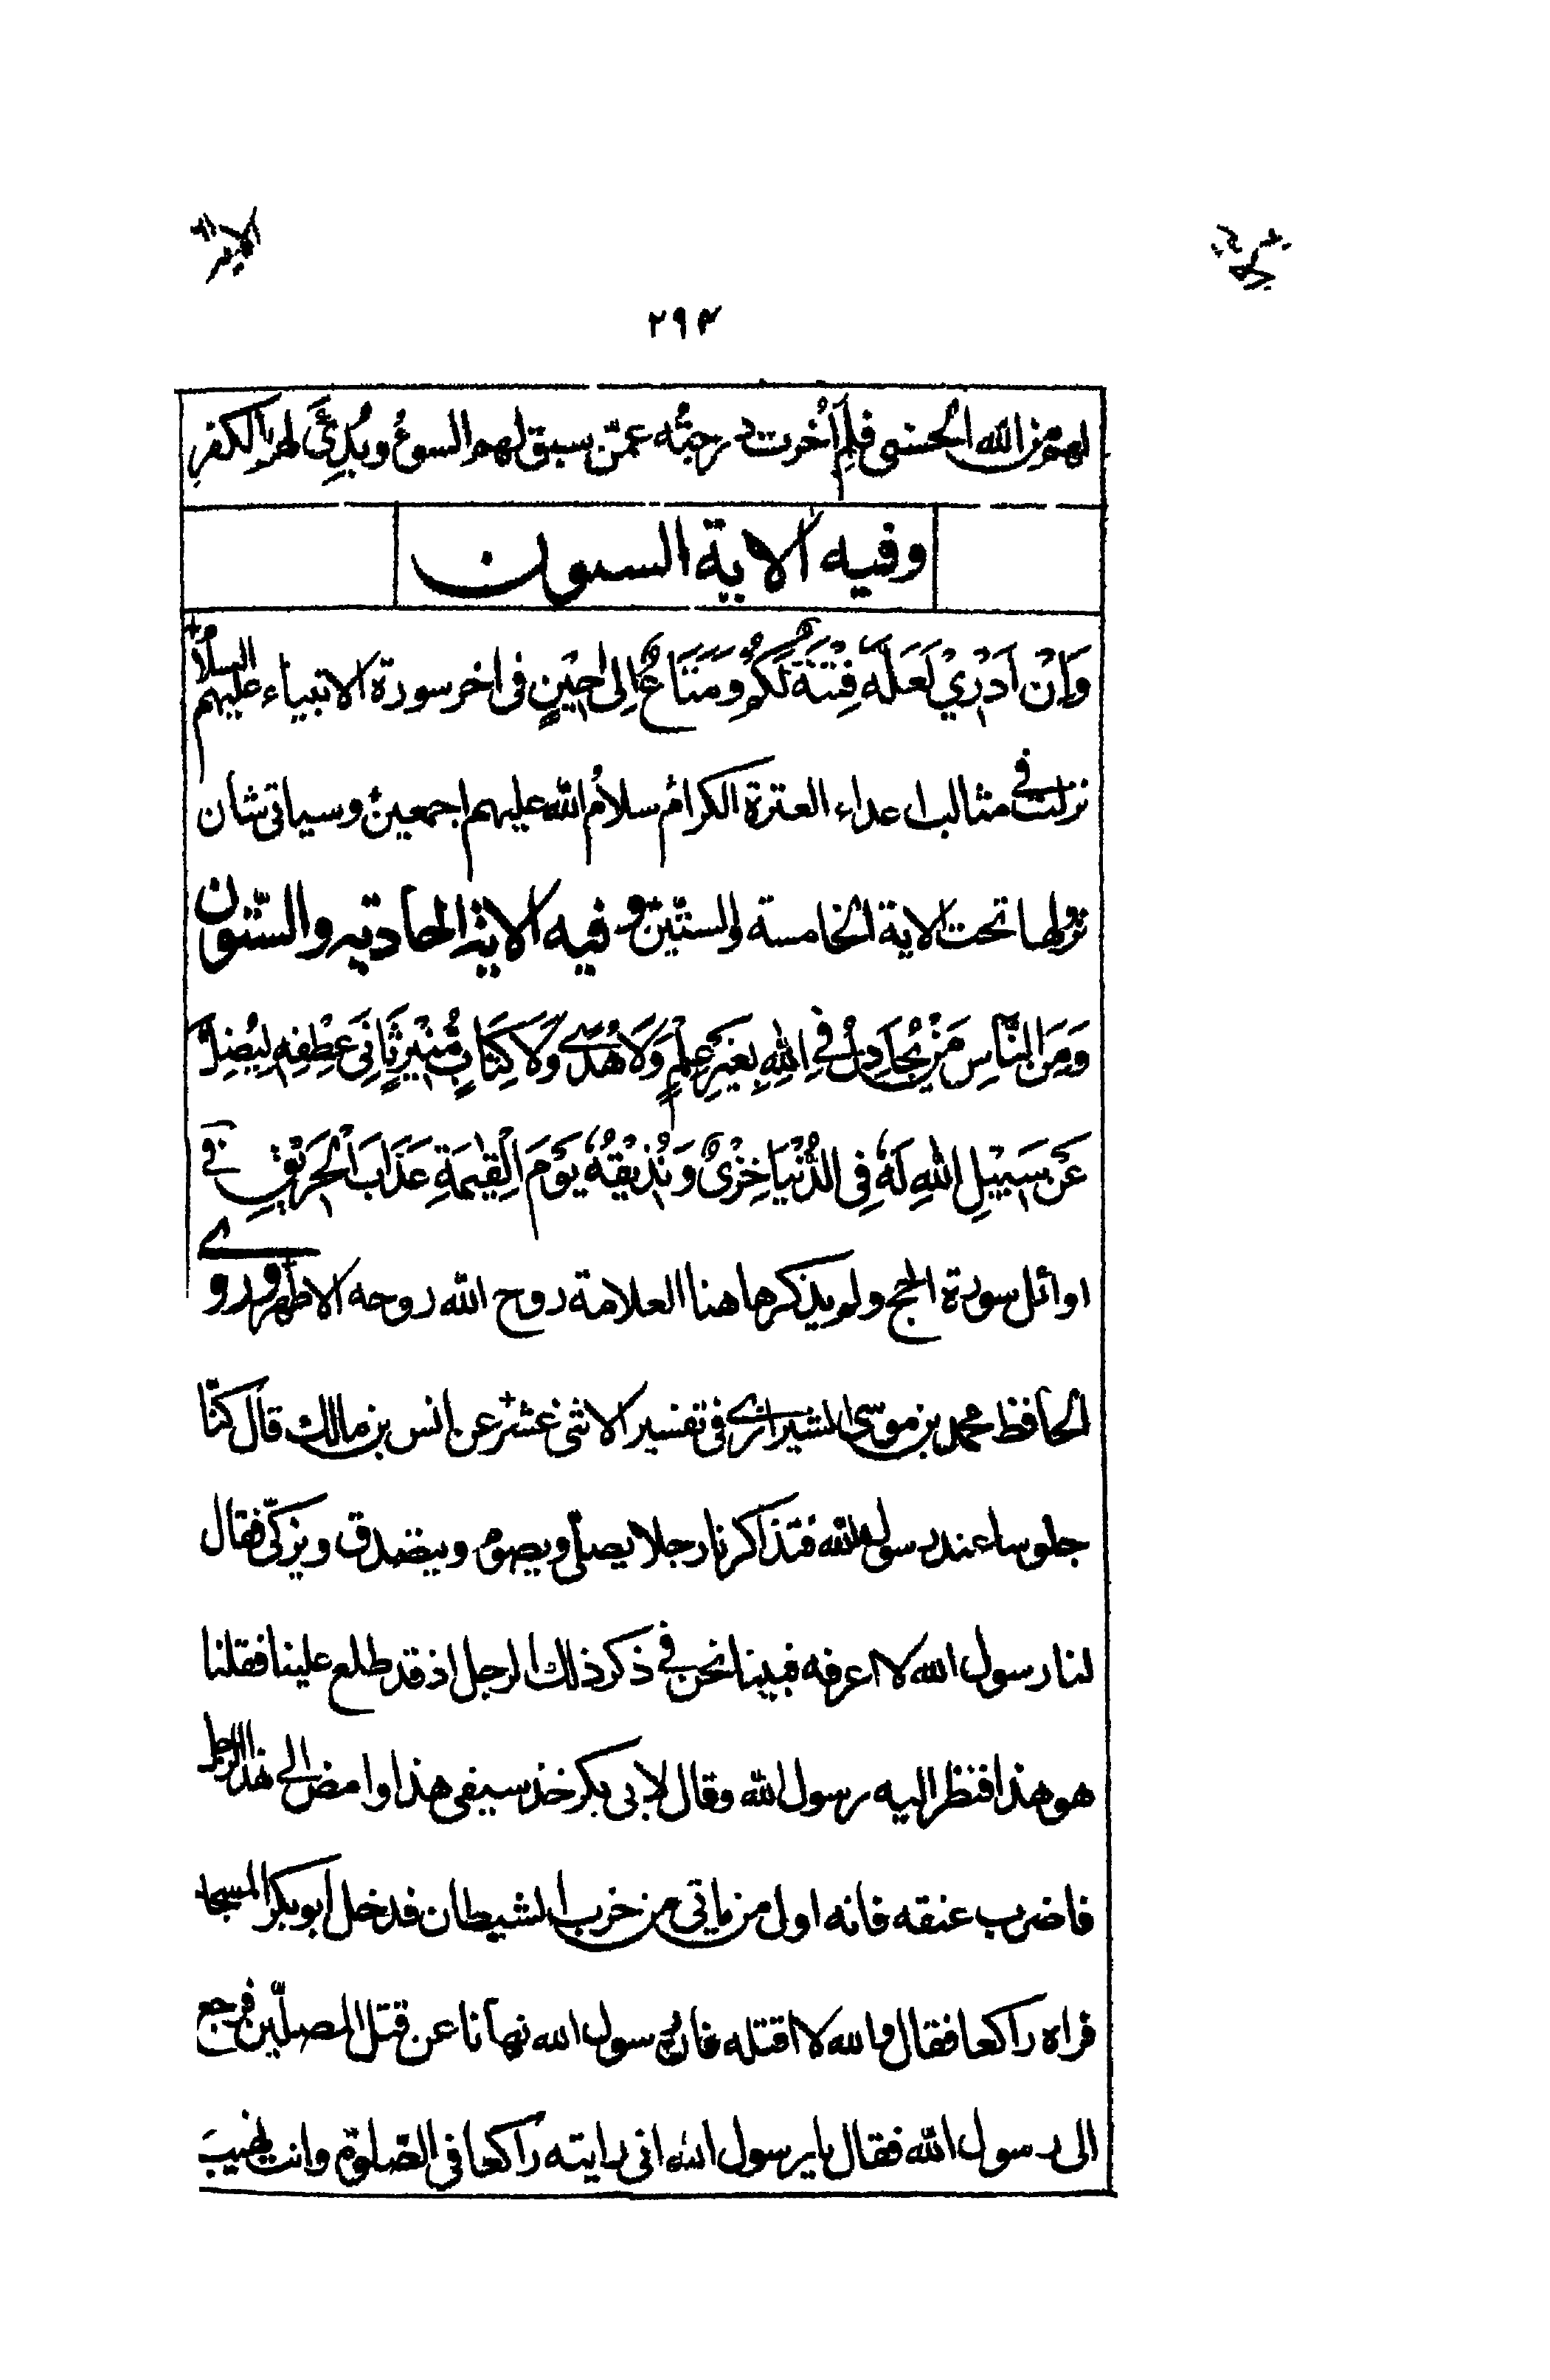 ٢٩٣
لهم من الله الحسنى فلم أُخرت درجته عمّن سبق لهم السوءُ وبُدِئَ لهم بالكفر
وفيه الاية الستون
وَاِنْ اَدْرِيْ لَعَلَّهٗ فِتْنَةٌ لَّكُمْ وَمَتَاعٌ اِلى حِيْنٍ فى اخر سورة الانبياء عليهم السلام
نزلت فى مثالب اعداء العترة الكرام سلام الله عليهم اجمعين وسياتى شان
نزولها تحت الاية الخامسة والستّين وفيه الاية الحادية والستّون
وَمِنَ النَّاسِ مَنْ يُّجَادِلُ فِى اللهِ بِغَيْرِ عِلْمٍ وَّلَا هُدًى وَّلَا كِتَابٍ مُّنِيْرٍ ثَانِيَ عِطْفِهٖ لِيُضِلَّ
عَنْ سَبِيْلِ اللهِ لَهٗ فِى الدُّنْيَا خِزْىٌ وَّنُذِيْقُهٗ يَوْمَ الْقِيٰمَةِ عَذَابَ الْحَرِيْقِ فى
اوائل سورة الحج ولم يذكرها هنا العلامة روح الله روحه الاطهر وروى
الحافظ محمد بن موسى الشيرازى فى تفسير الاثنى عشر عن انس بن مالك قال كنّا
جلوسا عند رسول الله فتذاكرنا رجلا يصلّى ويصوم ويتصدق ويزكّى فقال
لنا رسول الله لا اعرفه فبينا نحن فى ذكر ذلك الرجل اذ قد طلع علينا فقلنا
هو هذا فنظر اليه رسول الله وقال لابى بكر خذ سيفى هذا وامض الى هذا الرجل
فاضرب عنقه فانه اول من ياتى من حزب الشيطان فدخل ابو بكر المسجد
فراه راكعا فقال والله لا اقتله فان رسول الله نهانا عن قتل المصلّين فرجع
الى رسول الله فقال يا رسول الله انى رايته راكعا فى الصّلوة وانت نهيت